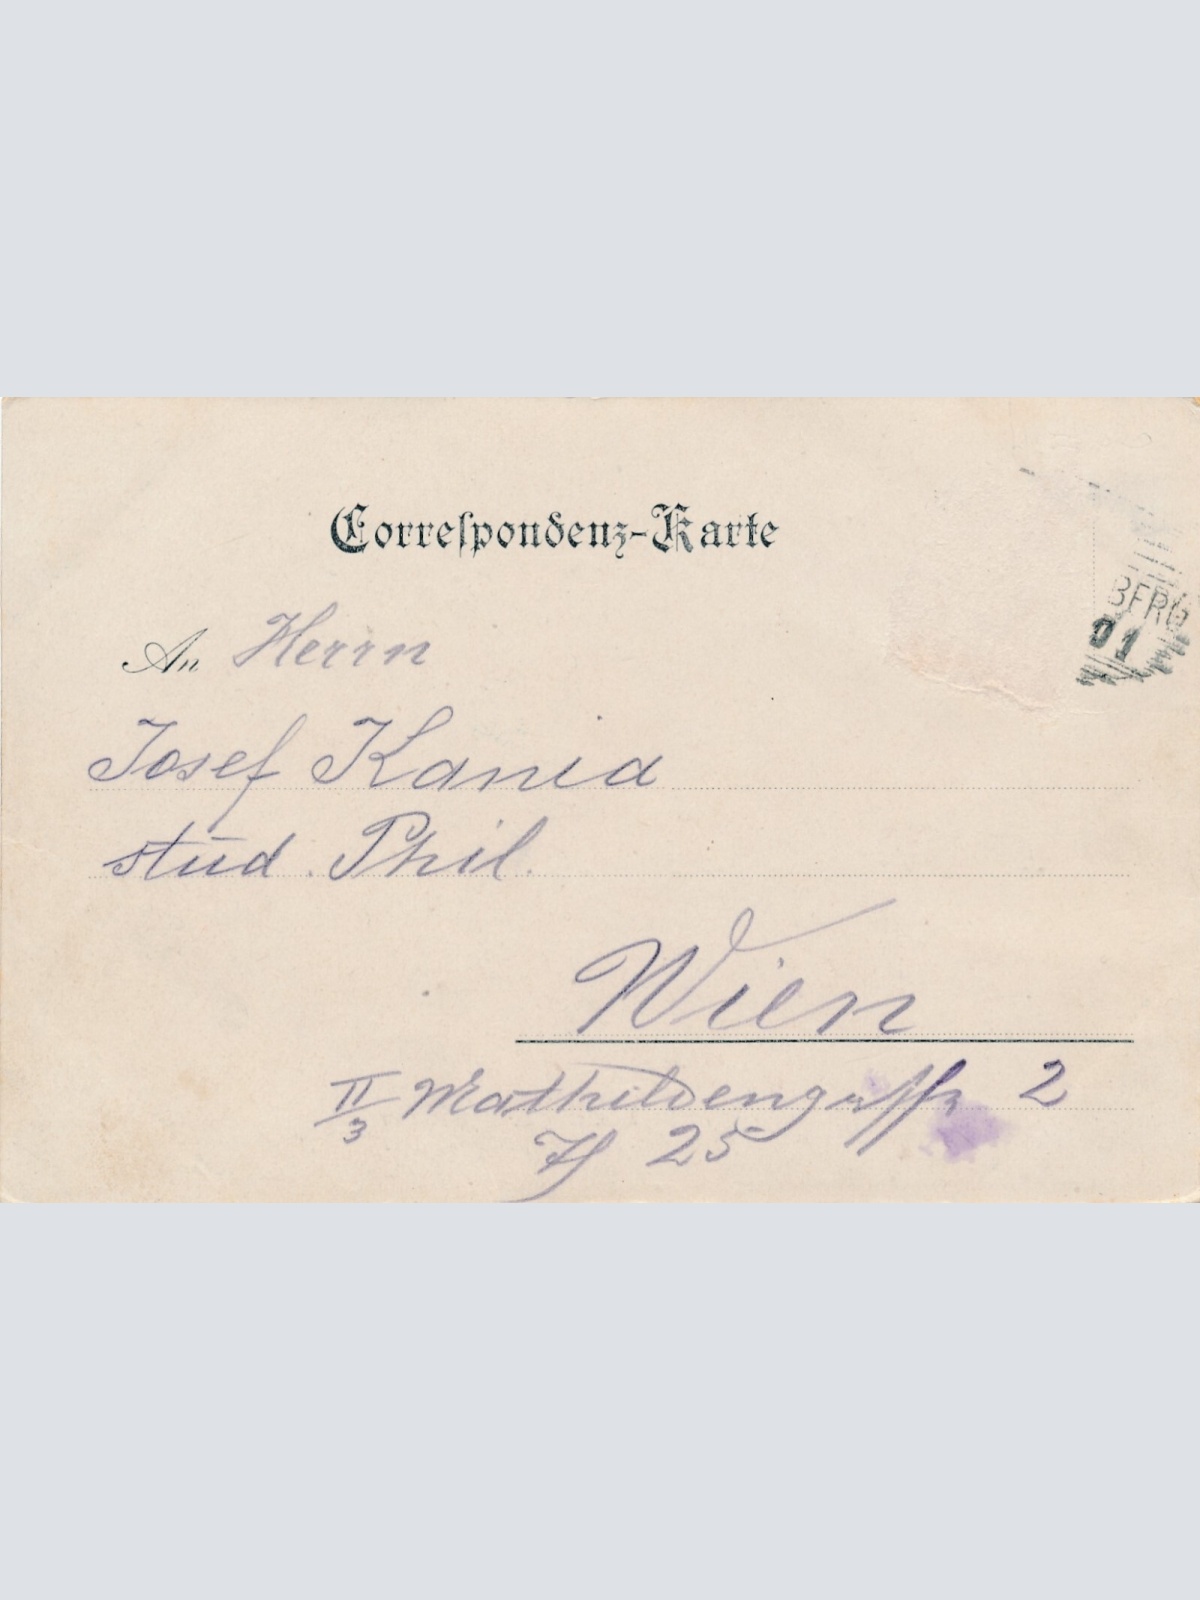 Correſpondenz-Karte
BERG
01
An Herrn
Josef Kania
stud. Phil.
Wien
II/3 Mathildengasse 2
25